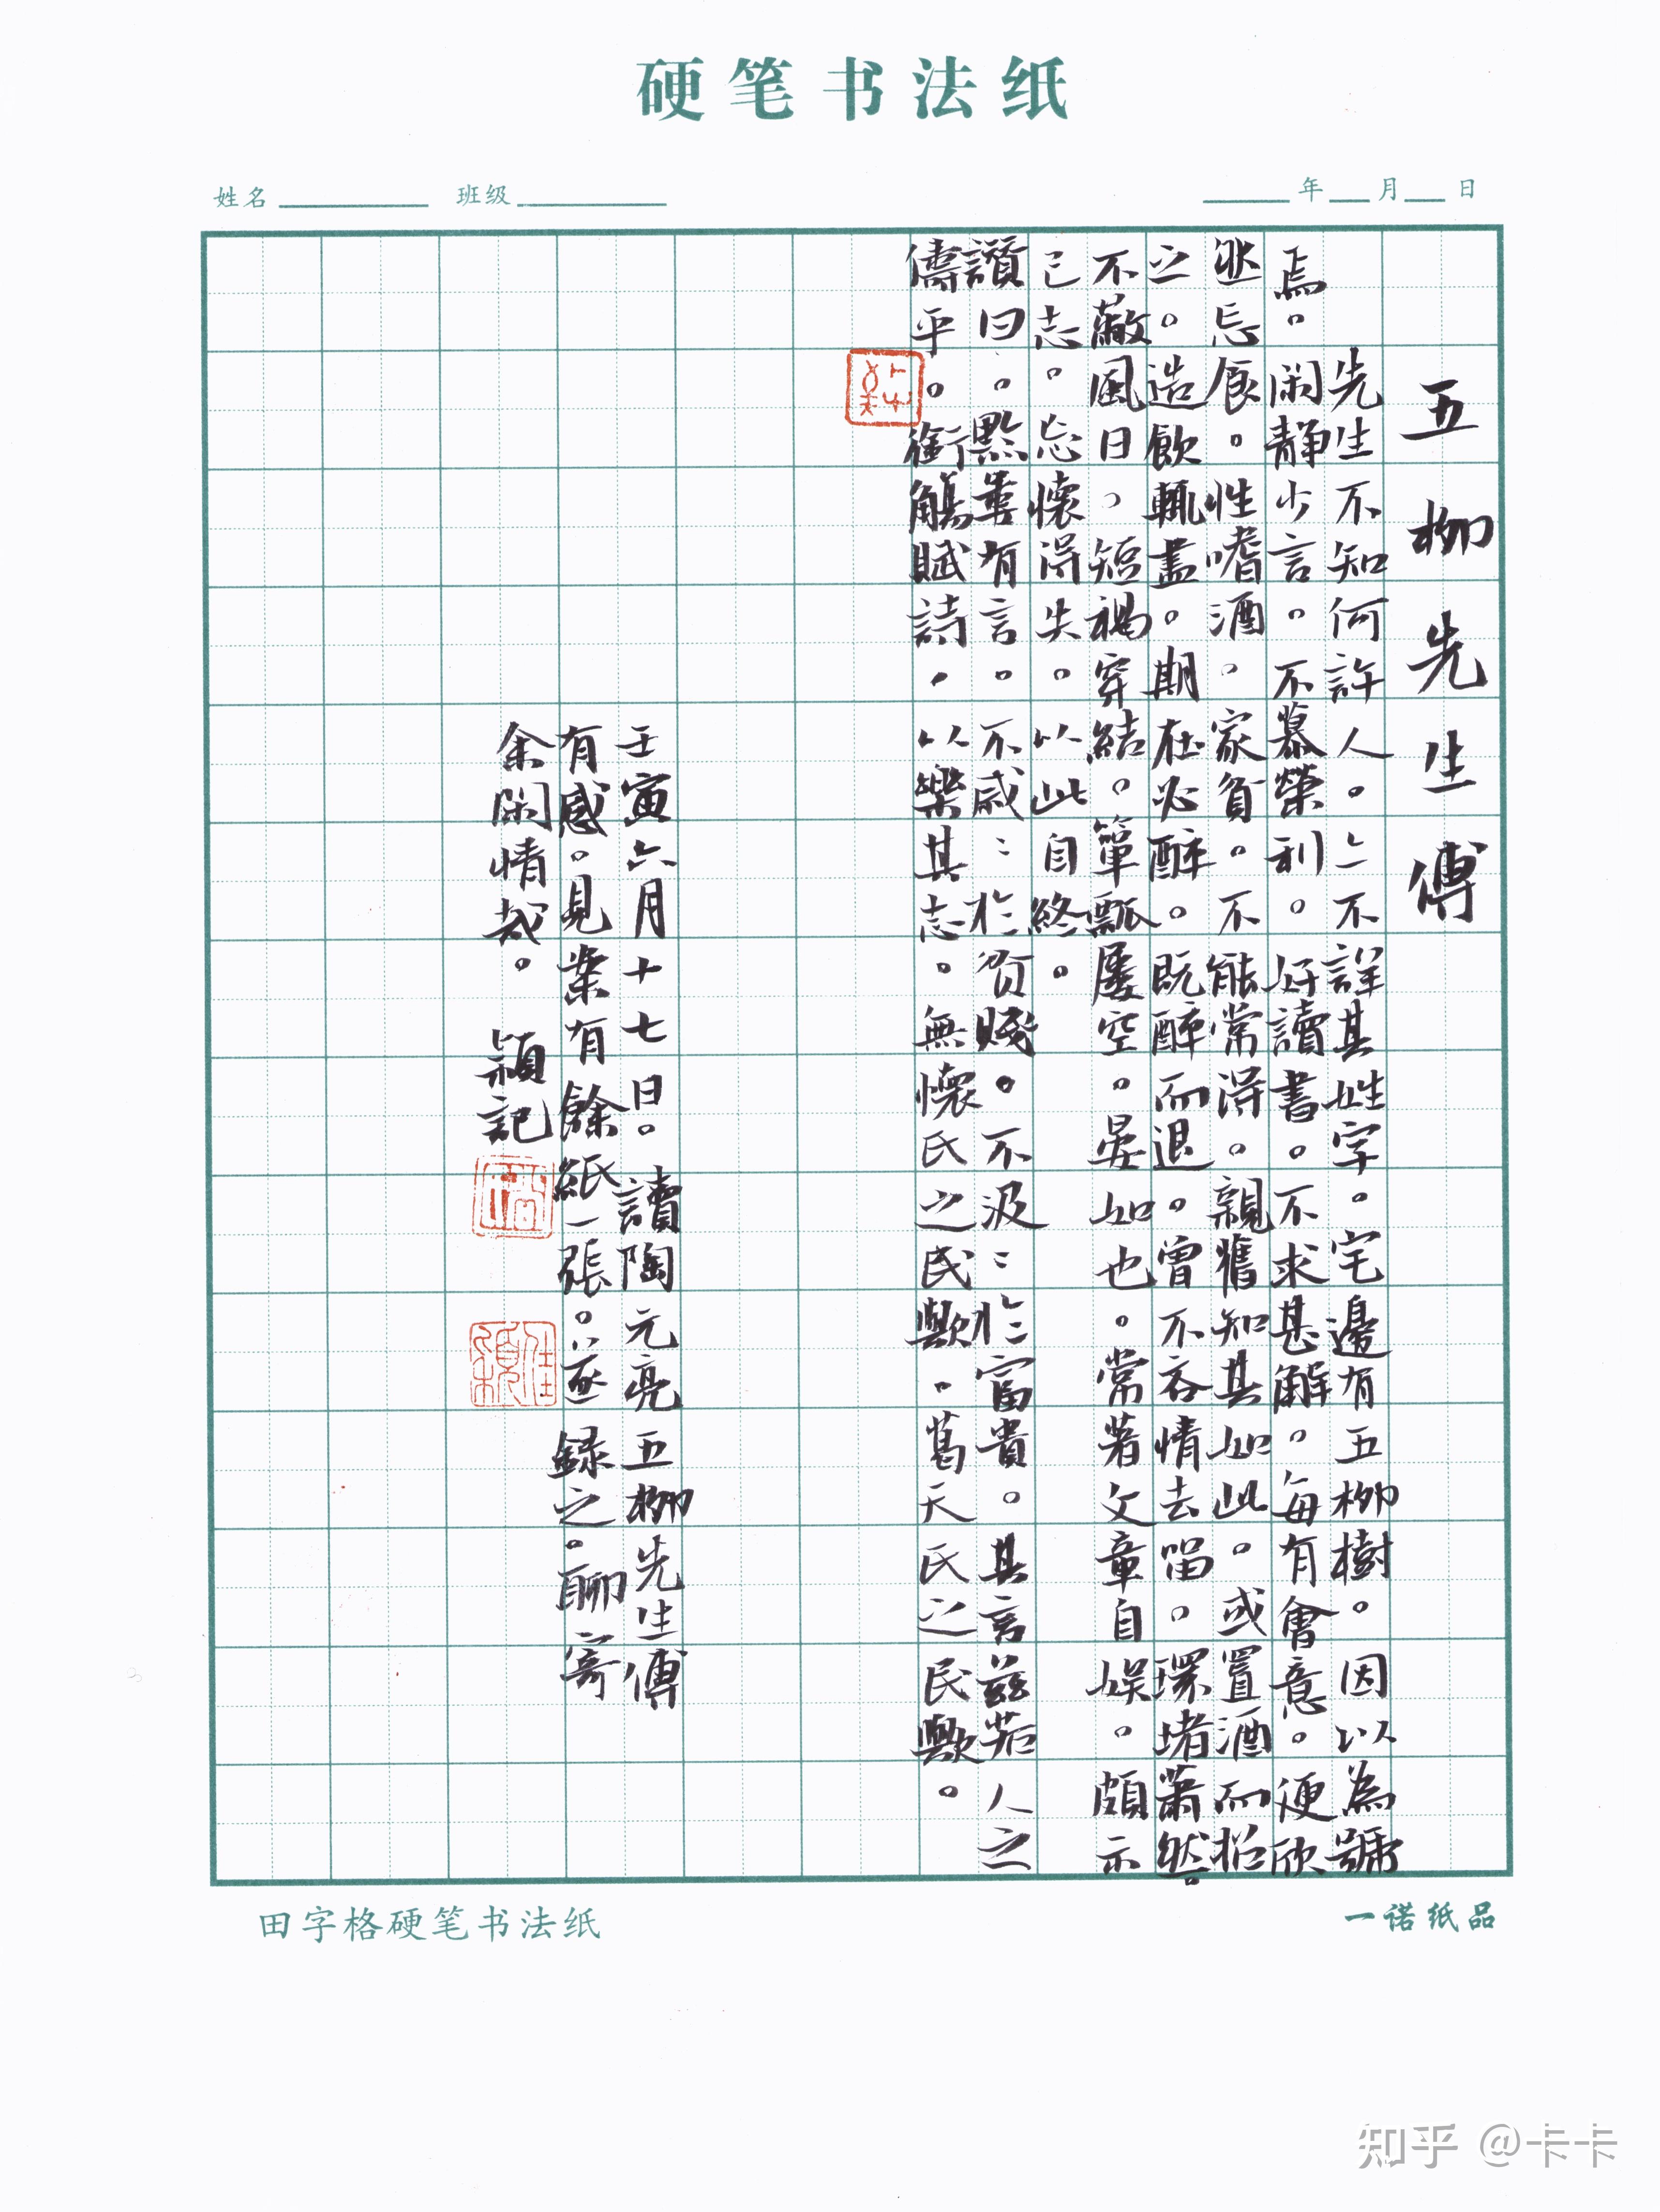 硬笔书法纸
姓名 班级 年 月 日
五柳先生傳
先生不知何許人。亠不詳其姓字。宅邊有五柳樹。因以為號
焉。閑静少言。不慕榮利。好讀書。不求甚解。每有會意。便欣
然忘食。性嗜酒。家貧。不能常得。親舊知其如此。或置酒而招
之。造飲輒盡。期在必醉。既醉而退。曾不吝情去留。環堵蕭然。
不蔽風日。短褐穿結。簞瓢屢空。晏如也。常著文章自娱。頗示
己志。忘懷得失。以此自終。
讚曰。黔婁有言。不戚〻於貧賤。不汲〻於富貴。其言茲若人之
儔乎。銜觴賦詩。以樂其志。無懷氏之民歟。葛天氏之民歟。
壬寅六月十七日。讀陶元亮五柳先生傳
有感。見案有餘紙一張。遂録之。聊寄
余閑情哉。 穎記
任穎
田字格硬笔书法纸 一诺纸品
知乎 @卡卡